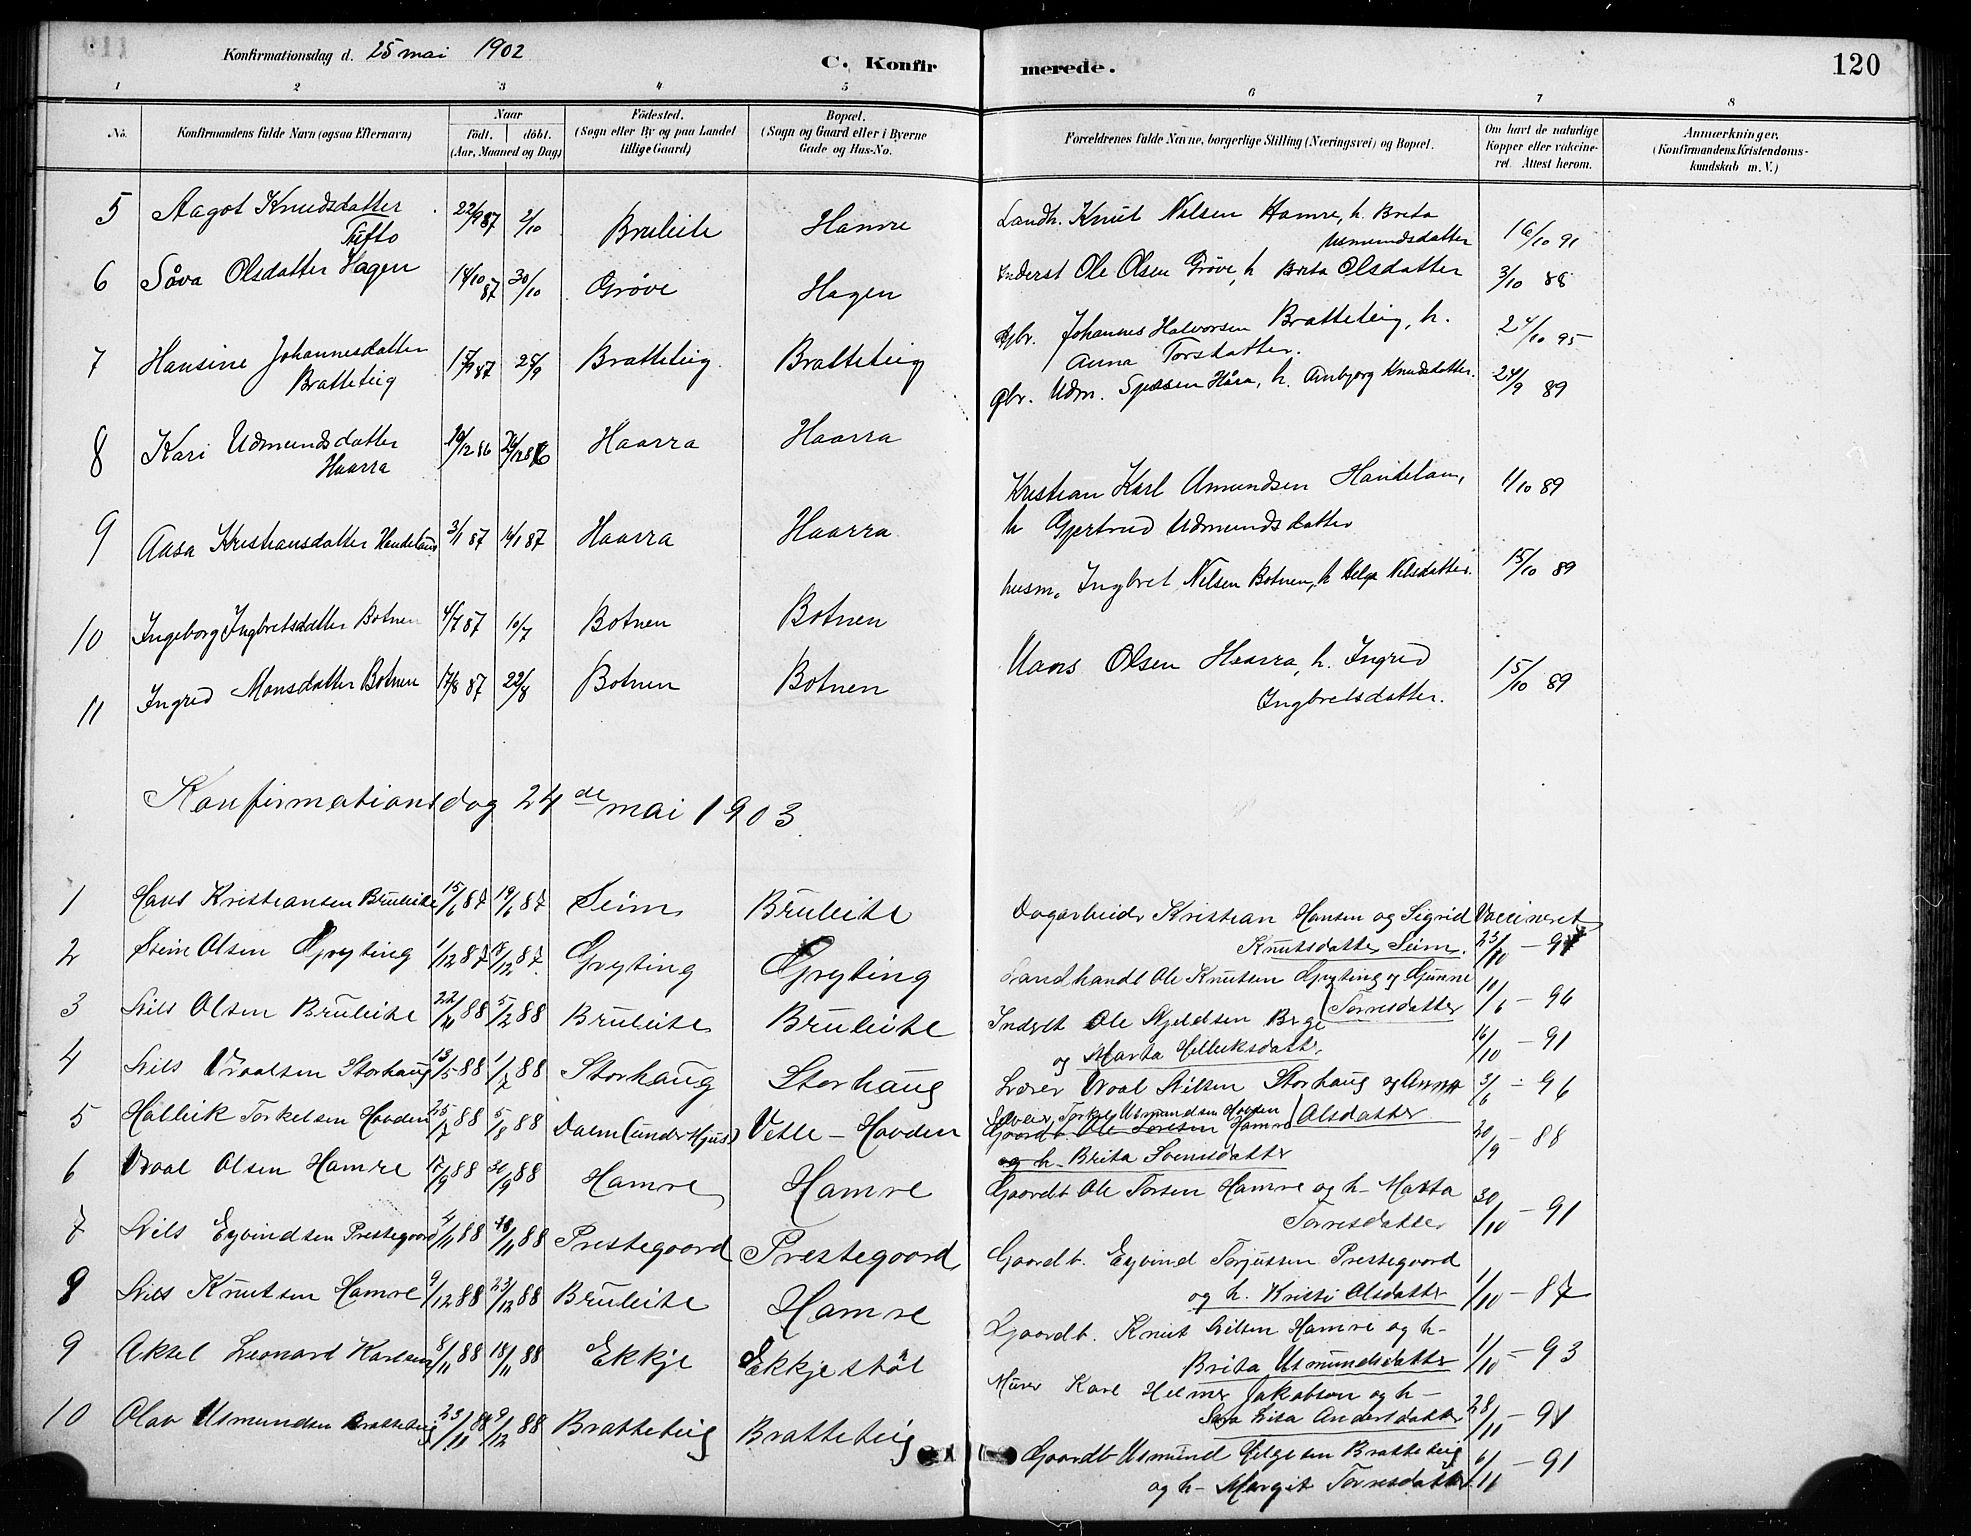 Konfirmationsdag d. 25 mai 1902
C. Konfirmerede.
120
1 2 3 4 5 6 7 8
No. Konfirmandens fulde Navn (ogsaa Efternavn) Naar Födested. Bopæl. Forældrenes fulde Navne, borgerlige Stilling (Næringsvei) og Bopæl. Om havt de naturlige Anmærkninger.
Födt. döbt. (Sogn eller By og paa Landet (Sogn og Gaard eller i Byerne Kopper eller vakcine- (Konfirmandens Kristendoms-
(Aar, Maaned og Dag) tillige Gaard) Gade og Hus-No. ret. Attest herom. kundskab m. V.)
5 Aagot Knudsdatter 22/9 87 2/10 Bruleite Hamre Landh. Knut Nilsen Hamre, h. Brita 16/10 91
Tufto Usmundsdatter
6 Såva Olsdatter Hagen 14/10 87 30/10 Grøve Hagen Inderst Ole Olsen Grøve, h Brita Olsdatter 3/10 88
7 Hansine Johannesdatter 15/9 87 25/9 Bratteteig Bratteteig Gbr. Johannes Halvorsen Bratteteig, h. 24/10 95
Bratteteig Anna Torsdatter.
8 Kari Udmundsdatter 19/12 86 26/12 86 Haarra Haarra gbr. Udm. Håra, h. Anbjorg Knudsdatter. 24/9 89
Haarra
9 Aasa Kristiansdatter Handeland 3/1 87 16/1 87 Haarra Haarra Kristian Karl Amundsen Handelan, 1/10 89
h Gjertrud Udmundsdatter
10 Ingeborg Ingbretsdatter Botnen 4/7 87 10/7 Botnen Botnen husm. Ingbret Nilsen Botnen, h Helga Nilsdatter. 15/10 89
11 Ingrid Monsdatter Botnen 17/8 87 22/8 Botnen Botnen Mons Olsen Haarra, h. Ingrid 15/10 89
Ingbretsdatter.
Konfirmationsdag 24de mai 1903.
1 Hans Kristiansen Bruleite 15/6 87 19/6 87 Seim Bruleite Dagarbeidr Kristian Hansen og Sigrid Vaccineret
Knutsdatter Seim. 23/10 - 97
2 Stein Olsen Gryting 1/12 87 8/12 87. Gryting Gryting Landhandl Ole Knutsen Gryting og Gunne
Torresdatter 10/6 - 96
3 Nils Olsen Bruleite 22/1 88 5/2 88 Bruleite Bruleite Inderst Ole Njeldsen Berge
og Marta Hellieksdatt. 16/10 - 91
4 Nils Vraalsen Storhaug 13/5 88 1/7 88 Storhaug Storhaug Lærer Vraal Nilsen Storhaug og Anna 3/6 - 96
Olsdatter
5 Halleik Torkelsen Hovden 25/7 88 5/8 88 Dalen (under Hjus) Vetle-Hovden Torkel Usmundsen Hovden
Gaardb. Ole Toresen Hamre
og h- Brita Svensdatter 20/9 - 88
6 Vraal Olsen Hamre 17/9 88 30/9 88 Hamre Hamre Gaardb Ole Torsen Hamre og h- Marta
Torresdatter 30/10 - 91
7 Nils Eyvindsen Prestegaard 4/11 88 18/11 88 Prestegaard Prestegaard Gaardb. Eyvind Torjussen Prestegaard
og h. Kristi Olsdatter 1/10 - 87
8 Nils Knutsen Hamre 9/12 88 23/12 88 Bruleite Hamre Gaardb. Knut Nilsen Hamre og h-
Brita Usmundsdatter 1/10 - 93
9 Aksel Leonard Karlsen 8/11 88 18/11 88 Ekkje Ekkjestøl Murer Karl Helmer Jakobsen og h-
Sara Lisa Andersdatter 28/11 - 91
10 Olav Usmundsen Bratteteig 23/11 88 9/12 88 Bratteteig Bratteteig Gaardb Usmund Helgesen Bratteteig 6/11 - 91
og h- Margit Torresdatter